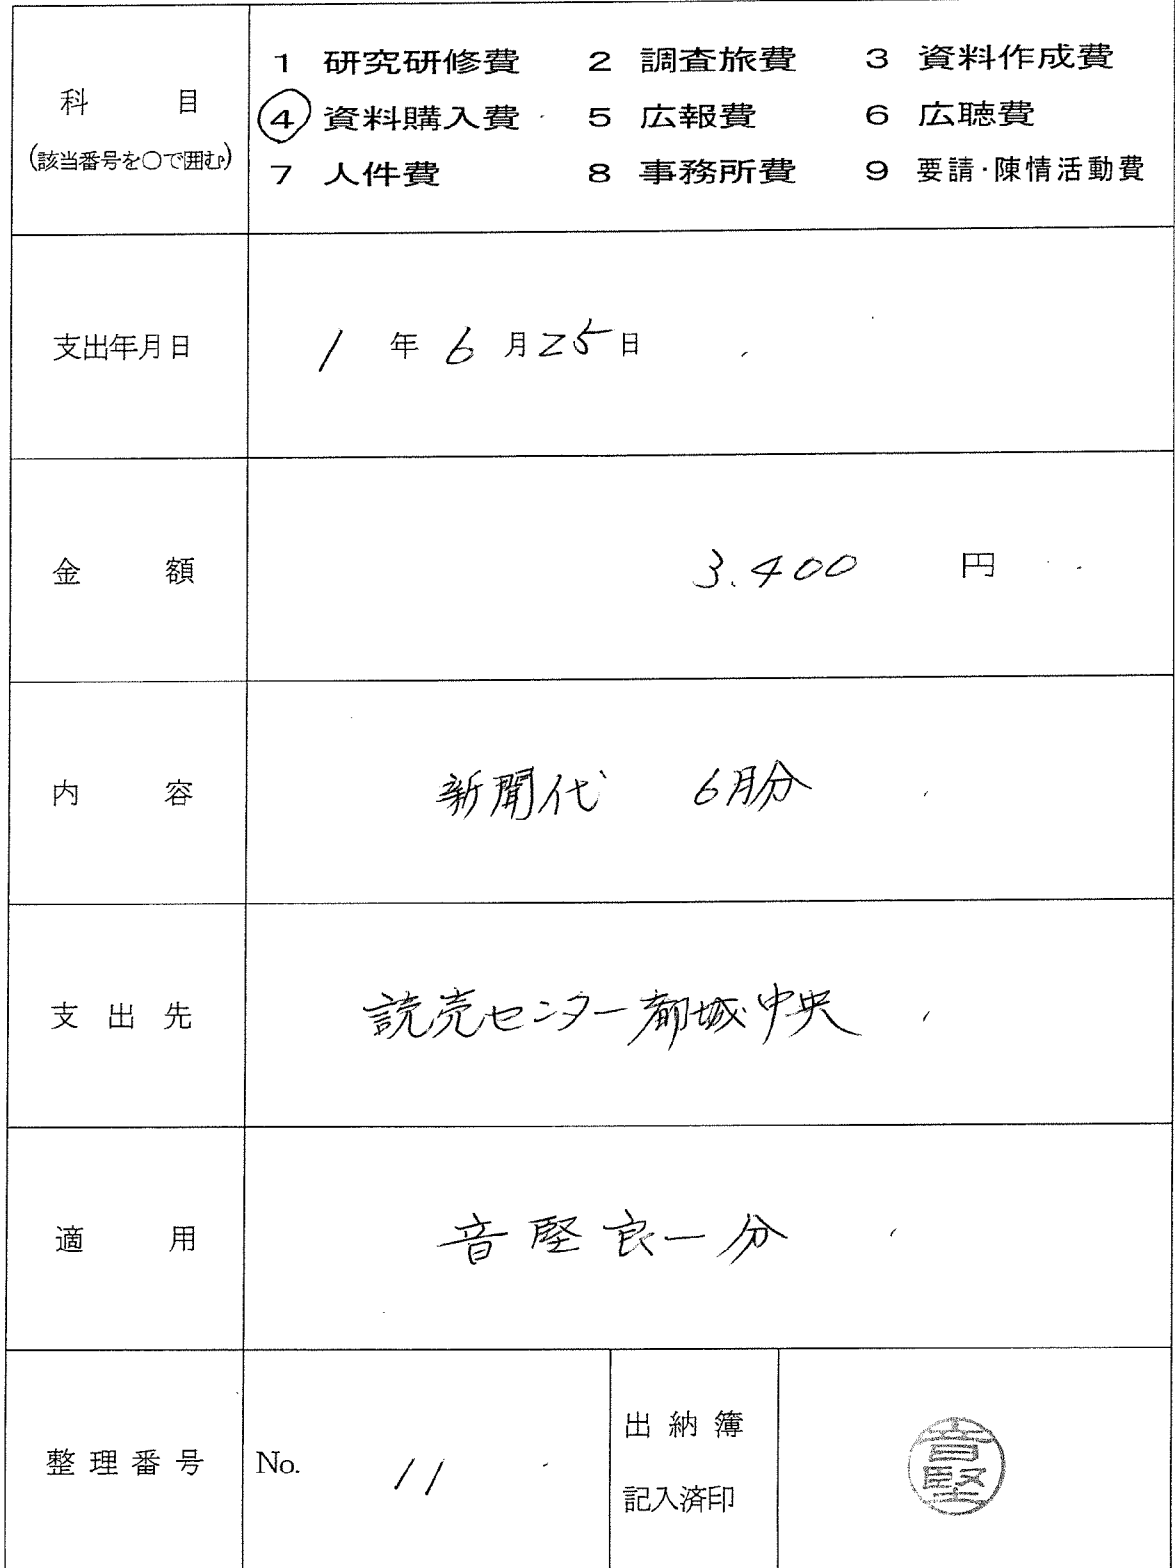 科目
(該当番号を○で囲む)
1 研究研修費 2 調査旅費 3 資料作成費
④ 資料購入費 5 広報費 6 広聴費
7 人件費 8 事務所費 9 要請・陳情活動費
支出年月日 1 年 6 月 25 日
金額 3.400 円
内容 新聞代 6月分
支出先 読売センター都城中央
適用 音堅良一分
整理番号 No. 11
出納簿
記入済印
音堅